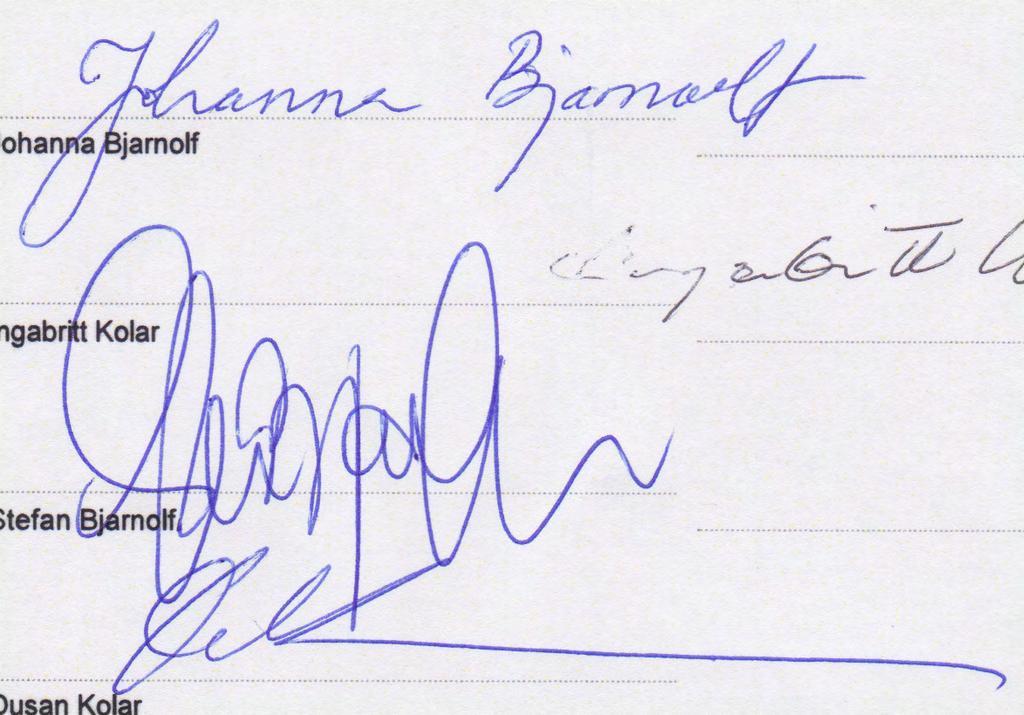 Johanna Bjarnolf
ohanna Bjarnolf
Ingabritt
ngabritt Kolar
Stefan Bjarnolf
Dusan Kolar